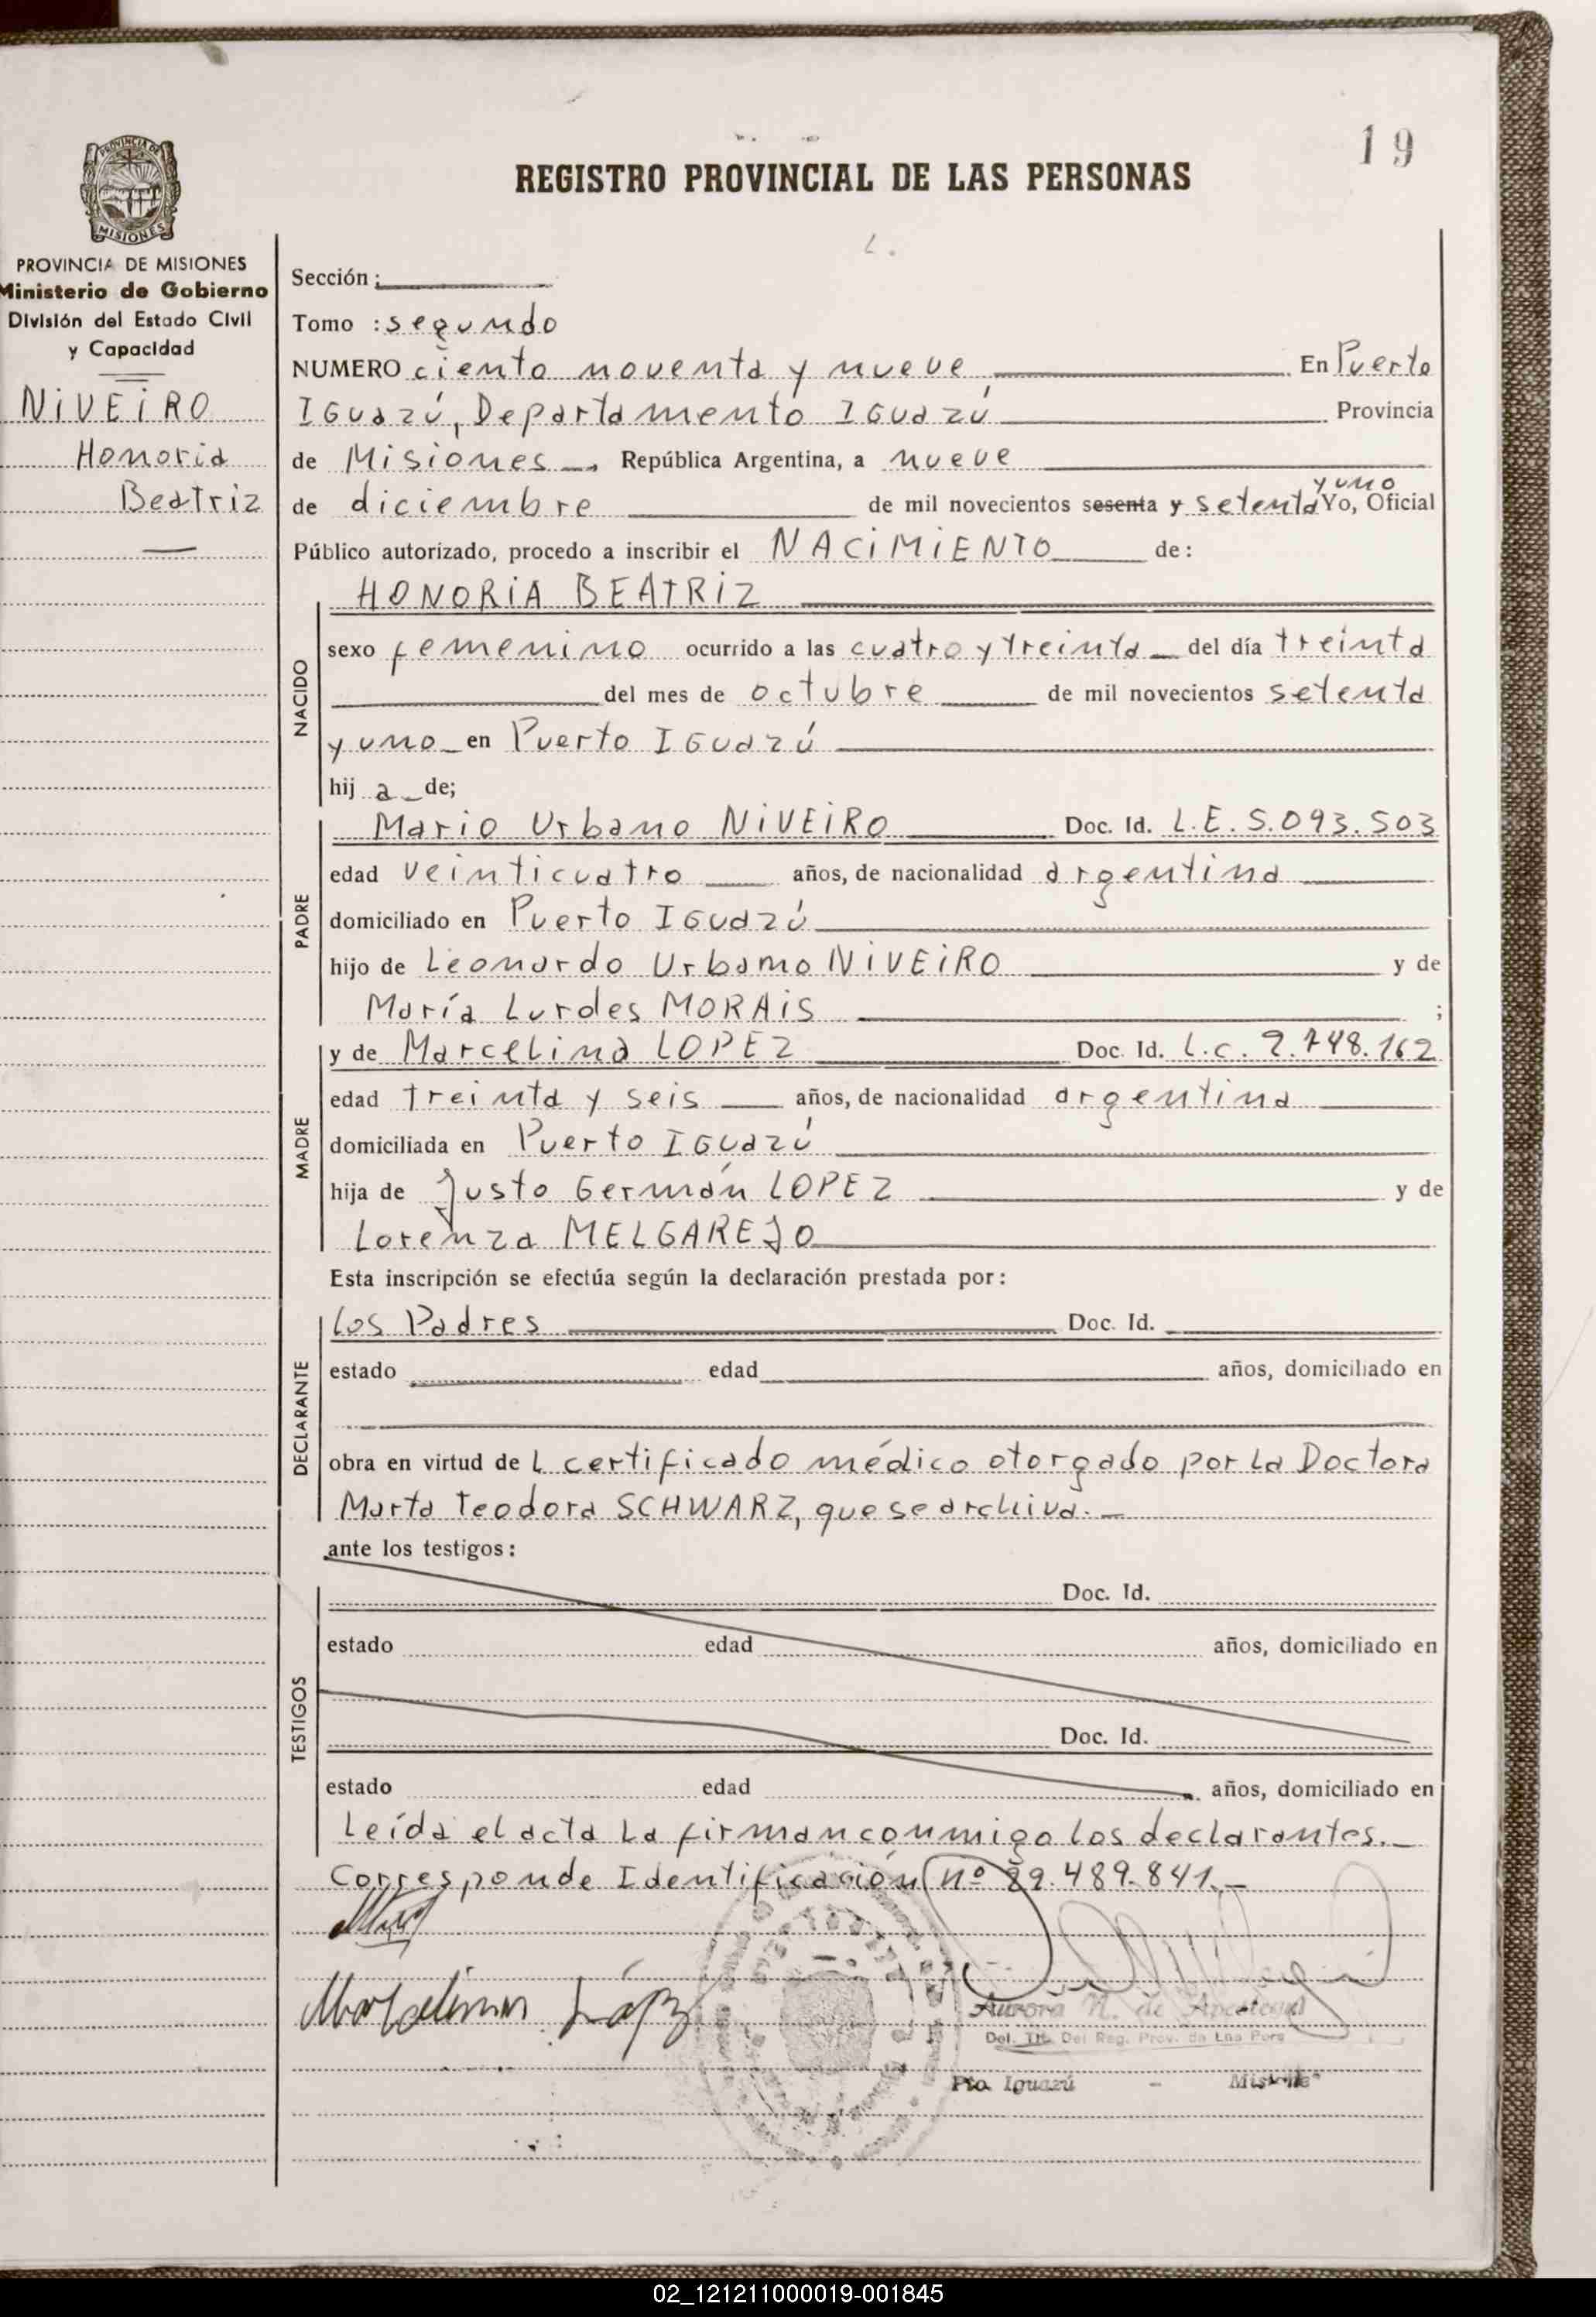 19
REGISTRO PROVINCIAL DE LAS PERSONAS
PROVINCIA DE MISIONES
PROVINCIA DE MISIONES
Ministerio de Gobierno
División del Estado Civil
y Capacidad
NIVEIRO
Honoria
Beatriz
Sección :
Tomo : segundo
NUMERO ciento noventa y nueve En Puerto
Iguazú, Departamento Iguazú Provincia
de Misiones República Argentina, a nueve
de diciembre de mil novecientos sesenta y setenta y uno Yo, Oficial
Público autorizado, procedo a inscribir el NACIMIENTO de :
NACIDO
HONORIA BEATRIZ
sexo femenino ocurrido a las cuatro y treinta del día treinta
del mes de octubre de mil novecientos setenta
y uno en Puerto Iguazú
hij a de;
PADRE
Mario Urbano NIVEIRO Doc. Id. L.E. 5.093.503
edad veinticuatro años, de nacionalidad argentina
domiciliado en Puerto Iguazú
hijo de Leonardo Urbano NIVEIRO y de
María Lurdes MORAIS ;
MADRE
y de Marcelina LOPEZ Doc. Id. L.C. 2.748.162
edad treinta y seis años, de nacionalidad argentina
domiciliada en Puerto Iguazú
hija de Justo Germán LOPEZ y de
Lorenza MELGAREJO
Esta inscripción se efectúa según la declaración prestada por :
DECLARANTE
los Padres Doc. Id.
estado edad años, domiciliado en
obra en virtud de L certificado médico otorgado por la Doctora
Marta Teodora SCHWARZ, que se archiva.
ante los testigos :
TESTIGOS
Doc. Id.
estado edad años, domiciliado en
Doc. Id.
estado edad años, domiciliado en
Leída el acta la firman conmigo los declarantes.
Corresponde Identificación nº 22.489.841.
Marcelina López
Aurora N. de
Del. Tit. Del Reg. Prov. de Las Pers
Pto. Iguazú - Misiones
02_121211000019-001845